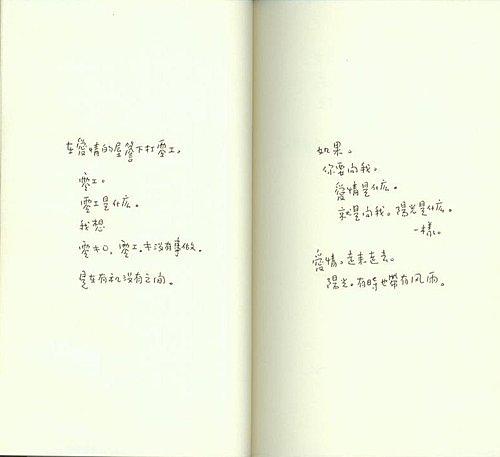 在愛情的屋簷下打零工。
零工。
零工是什麼。
我想
零+0。零工.+沒有事做。
是在有和沒有之間。
如果。
你要問我。
愛情是什麼。
就是問我。陽光是什麼。
一樣。
愛情。遠來遠去。
陽光。有時也帶有風雨。